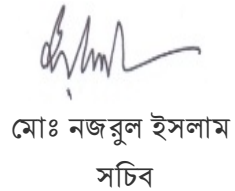 মোঃ নজরুল ইসলাম
সচিব